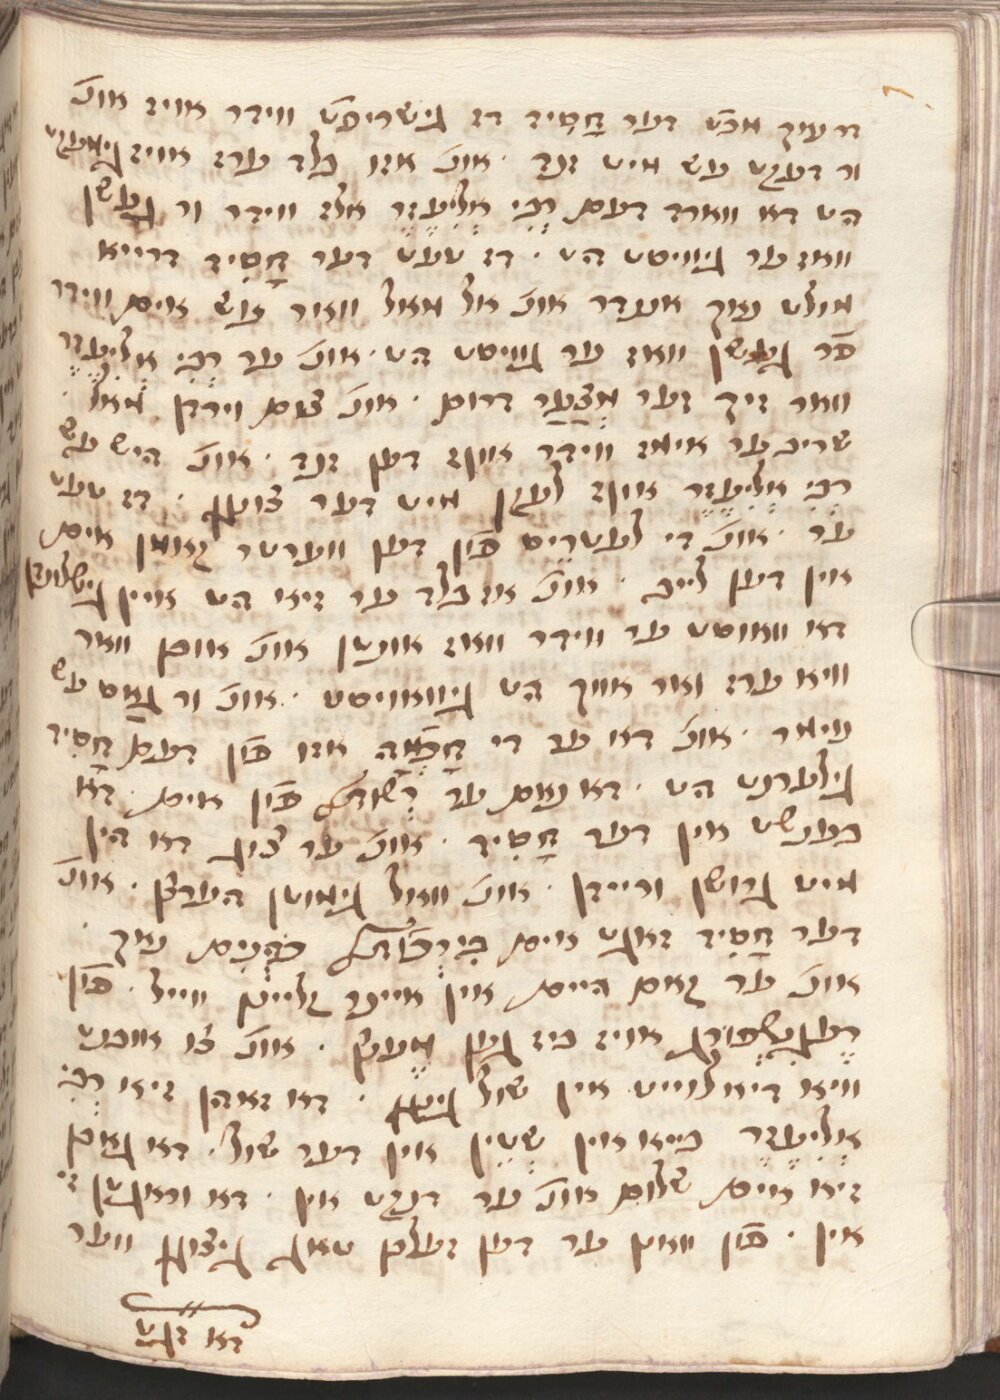 דר נוך מכט דער חָסִיד דז גישריפט ווידר אויז אונ'
ור דעקט עש מיט זנד · אונ' אזו בלד ערז אויז גימעקט
הט דא ווארד דעם רְבִי אֱלִיעֶזֶר אלז ווידר ור געשן
וואז ער גיוויסט הט · דז טעט דער חָסִיד דרייא
מולט נוך אנדר אונ' אל מאל וואר עש אים ווידר
פר געשן וואז ער גוויסט הט · אונ' ער רְבִי אֱלִיעֶזֶר
וואר זיך זער מְצַעֵר דרום · אונ' צום וירדן מאל
שריב ער אימז ווידר אויף דען זנד · אונ' היש עש
רְבִי אֱלִיעֶזֶר אויף לעקן מיט דער צונג · דז טעט
ער · אונ' די לעטרש פון דען ווערטר קאמן אים
אין דען לייב · אונ' אז בלד ער זיא הט איין גישלונדן
דא וואוסט ער ווידר וואז אונטן אונ' אובן וואר
וויא ערז ואר אויך הט גיוואויסט · אונ' ור גאס עש
נימר · אונ' דא ער די חָכְמָה אזו פון דעם חָסִיד
גילערנט הט · דא נאם ער רְשׁוּת פון אים · דא
בענשט אין דער חָסִיד · אונ' ער צוג דא הין
מיט גרושן ורייידן · אונ' וואל גימוטן הערץ · אונ'
דער חָסִיד זאגט אים בִּרְכַּת כֹּהֲנִים נוך ·
אונ' ער קאם היים אין איינר קליינן ווייל · פון
רֶעגֶנְשְׁפּוּרְג אויז ביז גען מֶעֶנץ · אונ' צו אובנט
וויא דיא לוייט אין שול גינגן · דא זאהן זיא רְבִי
אֱלִיעֶזֶר בייא אין שְׁטֵין אין דער שול · דא גאבן
זיא אים שלום אונ' ער דנקט אין · דא וראגטן זיא
אין · פון וואן ער דען זעלבן טאג גיצוגן ווער
דא זגט